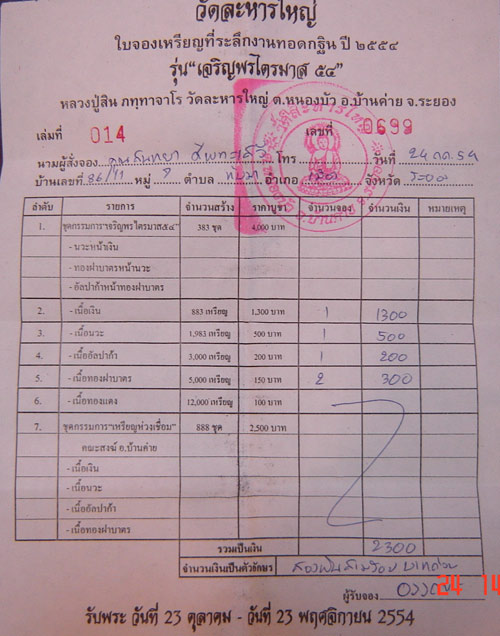 วัดละหารใหญ่
ใบจองเหรียญที่ระลึกงานทอดกฐิน ปี ๒๕๕๔
รุ่น"เจริญพรไตรมาส ๕๔"
หลวงปู่สิน ภทฺทาจาโร วัดละหารใหญ่ ต.หนองบัว อ.บ้านค่าย จ.ระยอง
เล่มที่ 014 เลขที่ 0699
นามผู้สั่งจอง โทร วันที่ 24 กค. 54
บ้านเลขที่ 86/11 หมู่ ตำบล ทับมา อำเภอ เมือง จังหวัด ระยอง
ลำดับ รายการ จำนวนสร้าง ราคาบูชา จำนวนจอง จำนวนเงิน หมายเหตุ
1. ชุดกรรมการ"เจริญพรไตรมาส๕๔" 383 ชุด 4,000 บาท
- นวะหน้าเงิน
- ทองฝาบาตรหน้านวะ
- อัลปาก้าหน้าทองฝาบาตร
2. - เนื้อเงิน 883 เหรียญ 1,300 บาท 1 1300
3. - เนื้อนวะ 1,983 เหรียญ 500 บาท 1 500
4. - เนื้ออัลปาก้า 3,000 เหรียญ 200 บาท 1 200
5. - เนื้อทองฝาบาตร 5,000 เหรียญ 150 บาท 2 300
6. - เนื้อทองแดง 12,000 เหรียญ 100 บาท
7. ชุดกรรมการ"เหรียญห่วงเชื่อม" 888 ชุด 2,500 บาท
คณะสงฆ์ อ.บ้านค่าย
- เนื้อเงิน
- เนื้อนวะ
- เนื้ออัลปาก้า
- เนื้อทองฝาบาตร
รวมเป็นเงิน 2300
จำนวนเงินเป็นตัวอักษร สองพันสามร้อยบาทถ้วน
ผู้รับจอง
24 14
รับพระ วันที่ 23 ตุลาคม - วันที่ 23 พฤศจิกายน 2554